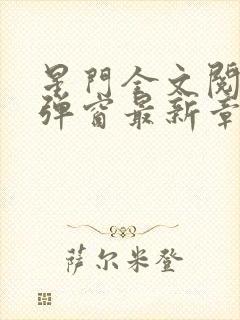 星門全文閱
彈窗最新章
萨尔米登